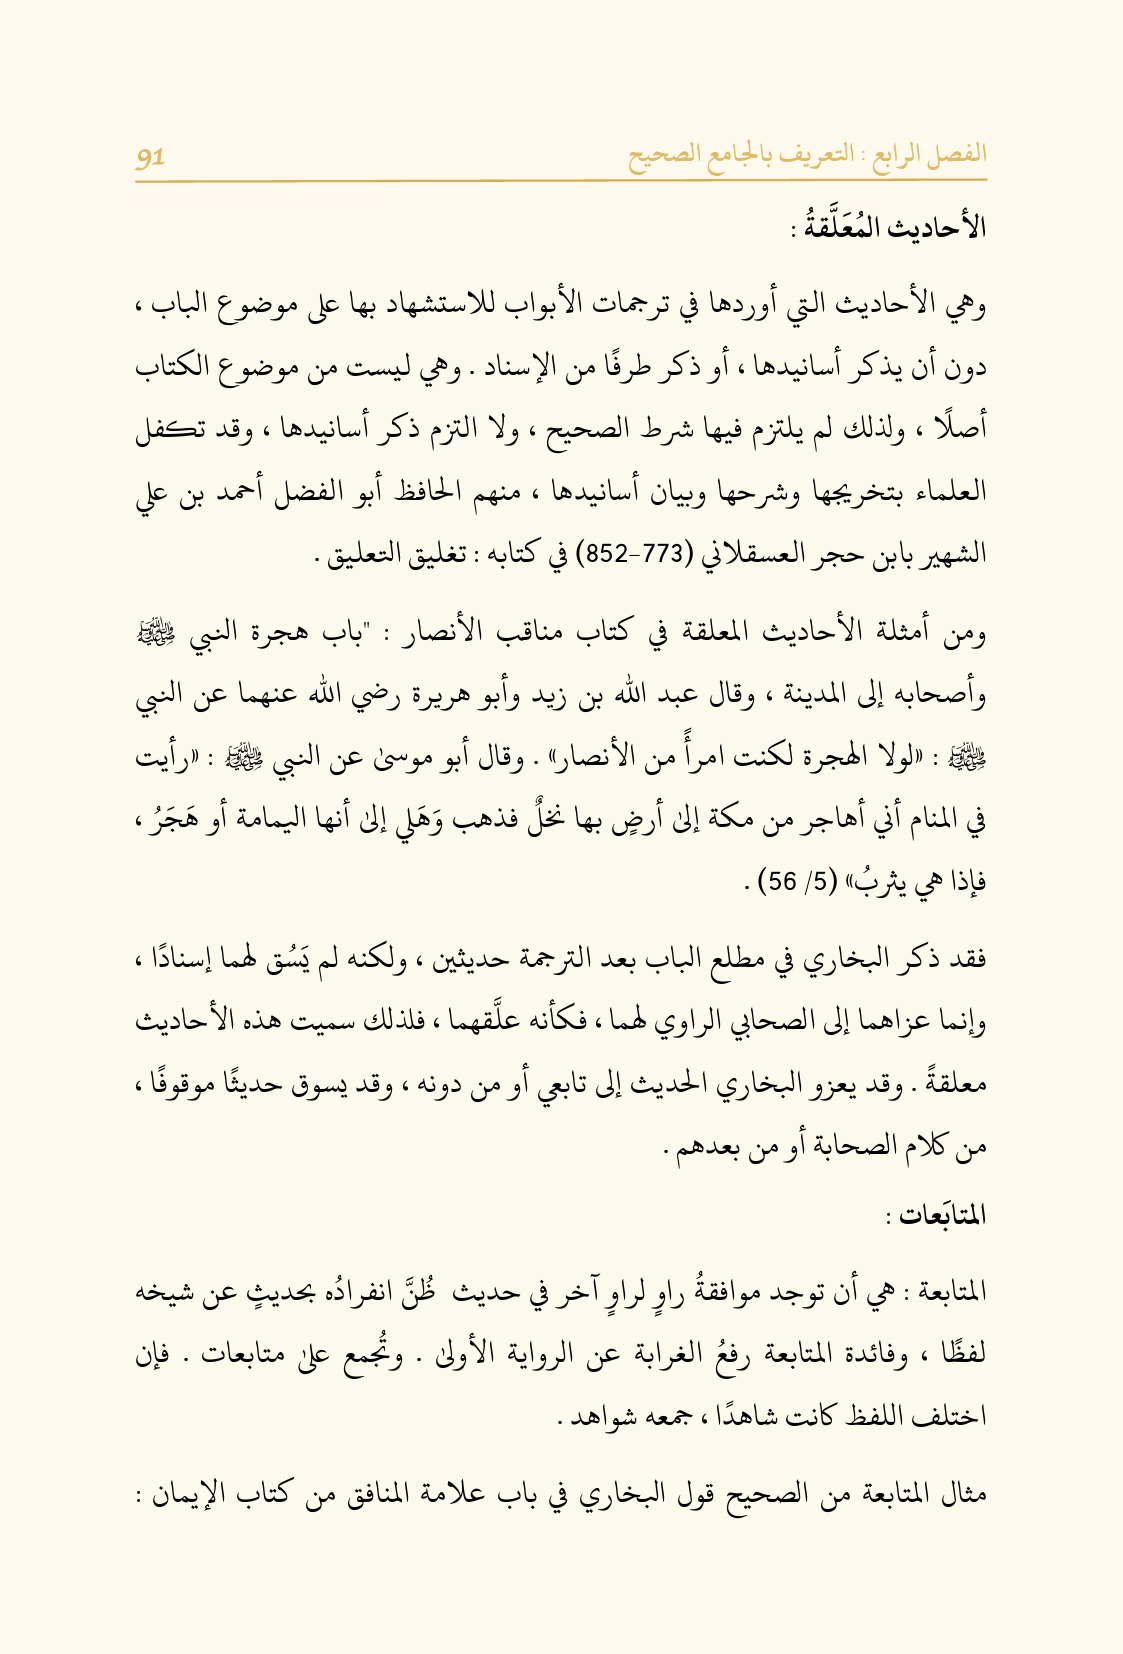 الفصل الرابع : التعريف بالجامع الصحيح 91
الأحاديث المُعَلَّقةُ :
وهي الأحاديث التي أوردها في ترجمات الأبواب للاستشهاد بها على موضوع الباب ،
دون أن يذكر أسانيدها ، أو ذكر طرفًا من الإسناد . وهي ليست من موضوع الكتاب
أصلًا ، ولذلك لم يلتزم فيها شرط الصحيح ، ولا التزم ذكر أسانيدها ، وقد تكفل
العلماء بتخريجها وشرحها وبيان أسانيدها ، منهم الحافظ أبو الفضل أحمد بن علي
الشهير بابن حجر العسقلاني (773-852) في كتابه : تغليق التعليق .
ومن أمثلة الأحاديث المعلقة في كتاب مناقب الأنصار : "باب هجرة النبي ﷺ
وأصحابه إلى المدينة ، وقال عبد الله بن زيد وأبو هريرة رضي الله عنهما عن النبي
ﷺ : «لولا الهجرة لكنت امرأً من الأنصار» . وقال أبو موسىٰ عن النبي ﷺ : «رأيت
في المنام أني أهاجر من مكة إلىٰ أرضٍ بها نخلٌ فذهب وَهَلي إلىٰ أنها اليمامة أو هَجَرُ ،
فإذا هي يثربُ» (5/ 56) .
فقد ذكر البخاري في مطلع الباب بعد الترجمة حديثين ، ولكنه لم يَسُق لهما إسنادًا ،
وإنما عزاهما إلى الصحابي الراوي لهما ، فكأنه علَّقهما ، فلذلك سميت هذه الأحاديث
معلقةً . وقد يعزو البخاري الحديث إلى تابعي أو من دونه ، وقد يسوق حديثًا موقوفًا ،
من كلام الصحابة أو من بعدهم .
المتابَعات :
المتابعة : هي أن توجد موافقةُ راوٍ لراوٍ آخر في حديث ظُنَّ انفرادُه بحديثٍ عن شيخه
لفظًا ، وفائدة المتابعة رفعُ الغرابة عن الرواية الأولىٰ . وتُجمع علىٰ متابعات . فإن
اختلف اللفظ كانت شاهدًا ، جمعه شواهد .
مثال المتابعة من الصحيح قول البخاري في باب علامة المنافق من كتاب الإيمان :